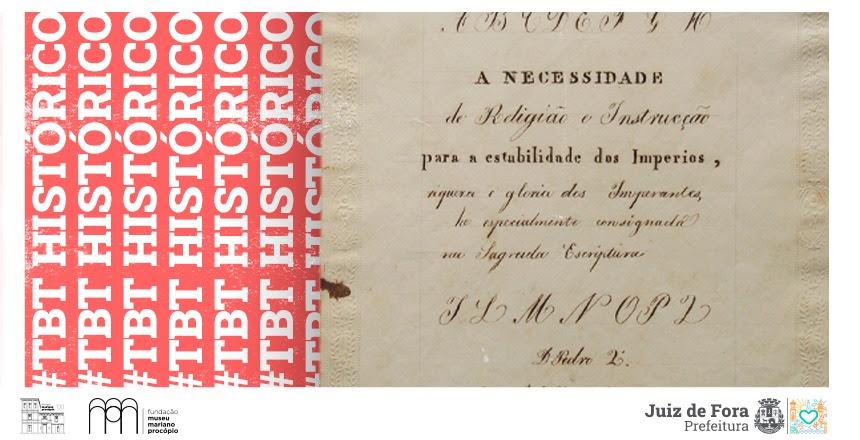 #TBT HISTÓRICO
#TBT HISTÓRICO
#TBT HISTÓRICO
#TBT HISTÓRICO
#TBT HISTÓRICO
#TBT HISTÓRICO
#TBT HISTÓRICO
A B C D E F G H
A NECESSIDADE
de Religião e Instrucção
para a estabilidade dos Imperios,
riquera e gloria dos Imperantes,
he especialmente consignada
na Sagrada Escriptura
J L M N O P Q
D. Pedro 2º.
fundação
museu
mariano
procópio
Juiz de Fora
Prefeitura